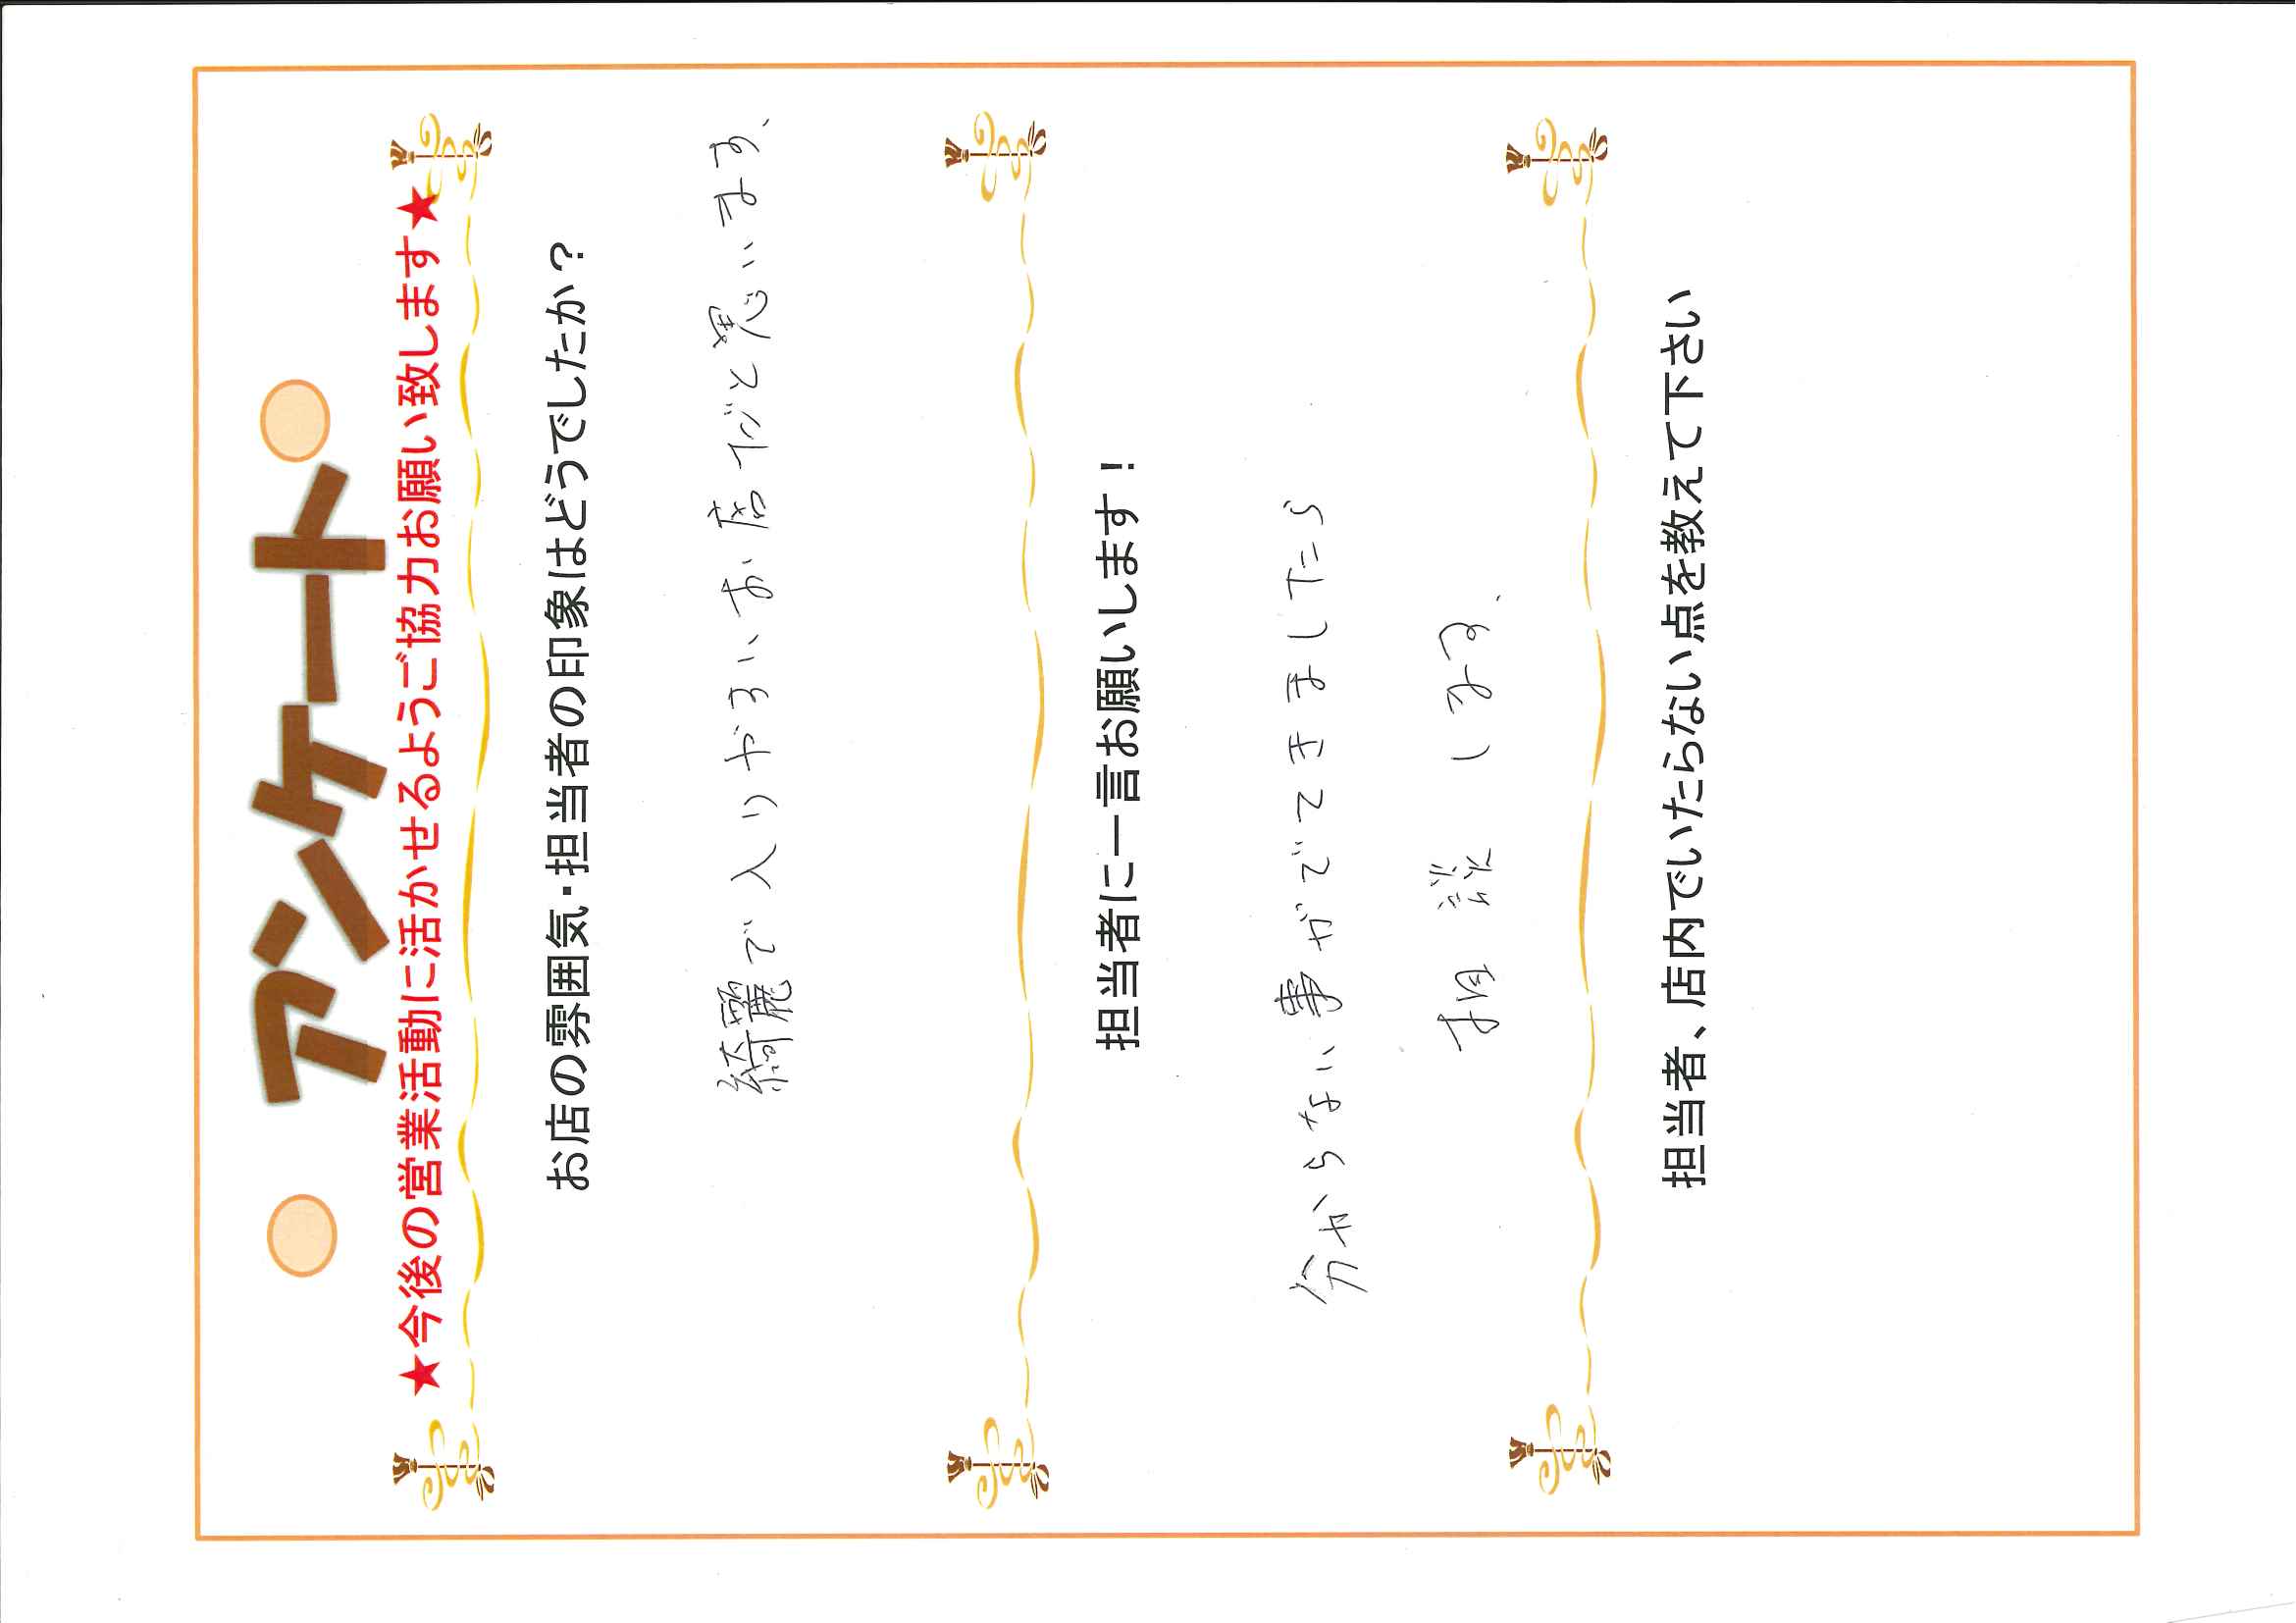 アンケート
★今後の営業活動に活かせるようご協力お願い致します★
お店の雰囲気・担当者の印象はどうでしたか？
綺麗で入りやすいお店だと思います、
担当者に一言お願いします！
分からない事がでてきましたら
相談します、
担当者、店内でいたらない点を教えて下さい